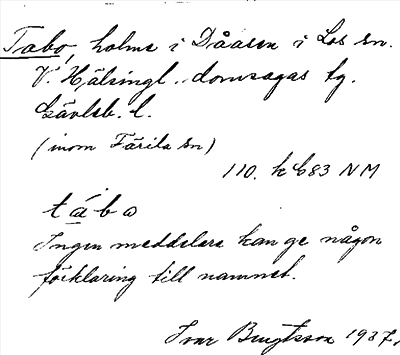 Tabo, holme i Dåasen i Los sn.
V. Hälsingl. domsagas tg.
Gävleb. l.
(inom Färila sn)
110. h 683 NM
tabo
Ingen meddelare kan ge någon
förklaring till namnet.
Ivar Bengtsson 1937.